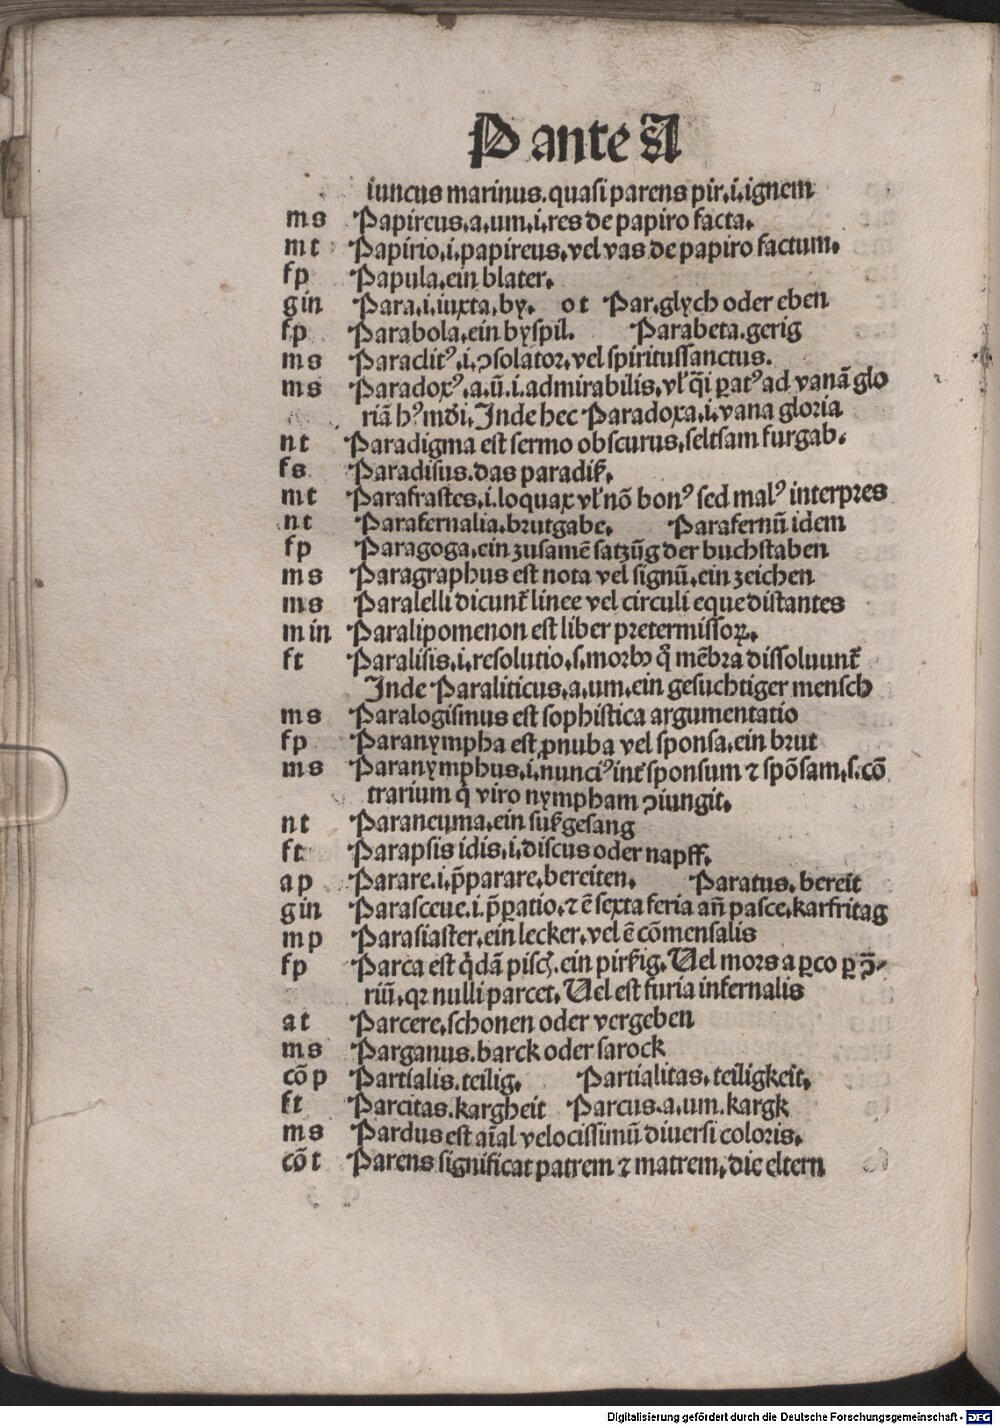 P ante A
iuncus marinus. quasi parens pir. i. ignem
m s Papireus. a. um. i. res de papiro facta.
m t Papirio. i. papireus. vel vas de papiro factum.
f p Papula. ein blater.
g in Para. i. iuxta. by. o t Par. glych oder eben
f p Parabola. ein byspil. Parabeta. gerig
m s Paraclitꝰ. i. ↄsolator. vel spiritussanctus.
m s Paradoxꝰ. a. ū. i. admirabilis. vl̕ q̄i ꝑatꝰ ad vanā glo
riā hꝰ mūdi. Inde hec Paradoxa. i. vana gloria
n t Paradigma est sermo obscurus. seltsam furgab.
f s Paradisus. das paradiß.
m t Parafrastes. i. loquax vl̕ nō bonꝰ sed malꝰ interpres
n t Parafernalia. brutgabe. Parafernū idem
f p Paragoga. ein zusamē satzūg der buchstaben
m s Paragraphus est nota vel signū. ein zeichen
m s Paralelli dicunt̄ linee vel circuli eque distantes
m in Paralipomenon est liber pretermissoꝝ.
f t Paralisis. i. resolutio. s. morbꝰ q̄ mēbra dissoluunt̄
Inde Paraliticus. a. um. ein gesuchtiger mensch
m s Paralogismus est sophistica argumentatio
f p Paranympha est ꝓnuba vel sponsa. ein brut
m s Paranymphus. i. nunciꝰ int̄ sponsum ⁊ spōsam. s. cō
trarium q̄ viro nympham ↄiungit.
n t Paraneuma. ein sußgesang
f t Parapsis idis. i. discus oder napff.
a p Parare. i. p̄parare. bereiten. Paratus. bereit
g in Parasceue. i. p̄ꝑatio. ⁊ ē sexta feria an̄ pasce. karfritag
m p Parasiaster. ein lecker. vel ē cōmensalis
f p Parca est q̄dā pisc̄. ein pirßig. Vel mors a ꝑco ꝑ ↄ̄-
riū. qꝛ nulli parcet. Vel est furia infernalis
a t Parcere. schonen oder vergeben
m s Parganus. barck oder sarock
cō p Partialis. teilig. Partialitas. teiligkeit.
f t Parcitas. kargheit Parcus. a. um. kargk
m s Pardus est aīal velocissimū diuersi coloris.
cō t Parens significat patrem ⁊ matrem. die eltern
Digitalisierung gefördert durch die Deutsche Forschungsgemeinschaft - DFG